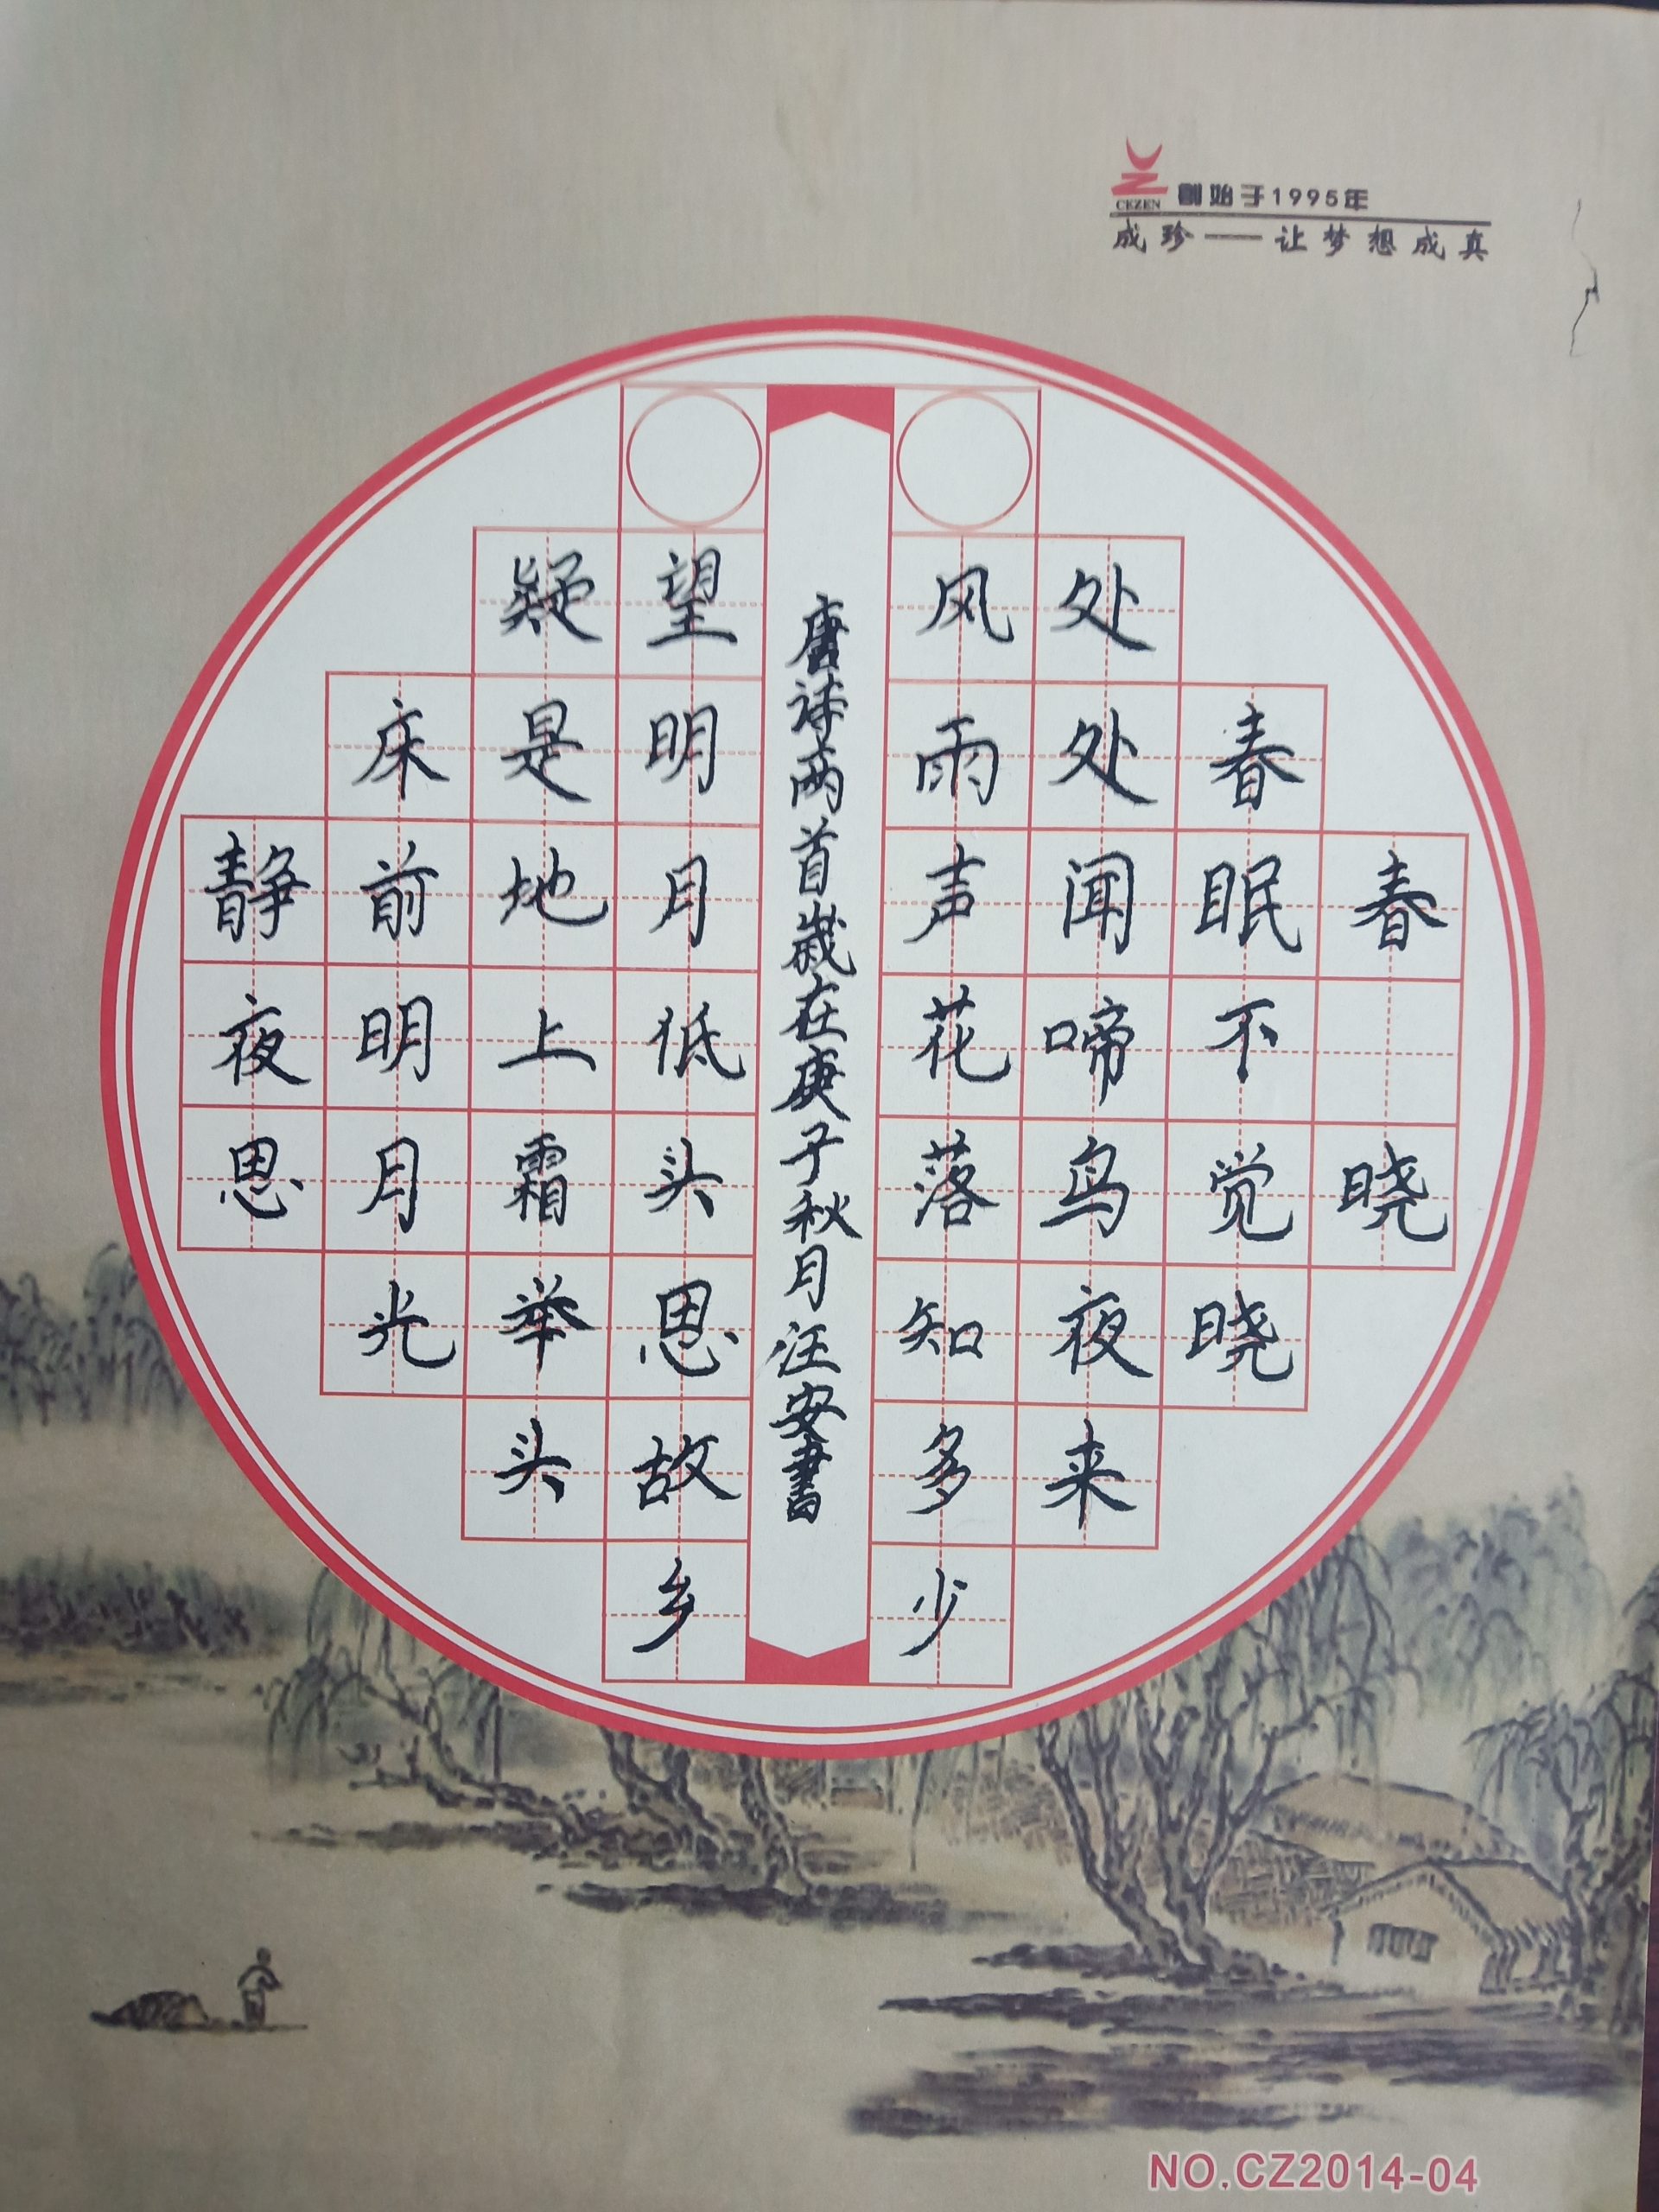 CEZEN 創始于1995年
成珍——让梦想成真
春晓
春眠不觉晓
处处闻啼鸟夜来
风雨声花落知多少
唐诗两首歲在庚子秋月汪安書
静夜思
床前明月光
疑是地上霜举头
望明月低头思故乡
NO.CZ2014-04